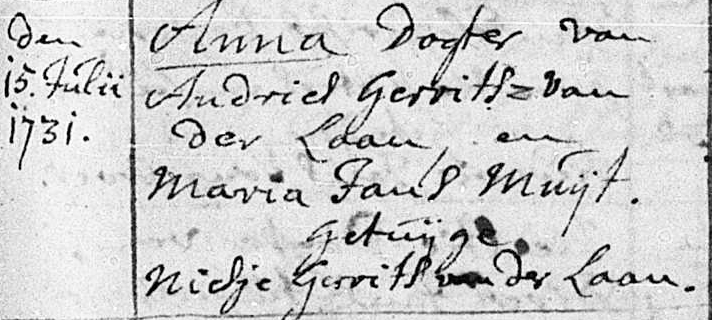 den
15. Julii
1731.
Anna Dogter van
Andries Gerritsz van
der Laan, en
Maria Jans Muÿt.
getuÿge
Niesje Gerrits van der Laan.